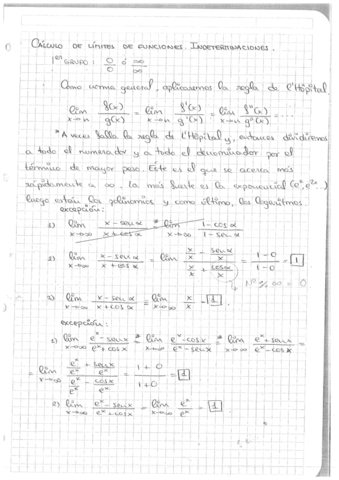 CÁLCULO DE LÍMITES DE FUNCIONES. INDETERMINACIONES.
1er GRUPO: 0/0 ó ∞/∞
Como norma general, aplicaremos la regla de l'Hôpital.
lim x→n f(x)/g(x) = lim x→n f'(x)/g'(x) = lim x→n f''(x)/g''(x) = ...
* A veces falla la regla de l'Hôpital y, entonces dividiremos
a todo el numerador y a todo el denominador por el
término de mayor peso. Éste es el que se acerca más
rápidamente a ∞. La más fuerte es la exponencial (eˣ, e²ˣ..)
luego están los polinomios y como último, los logaritmos
excepción:
1) lim x→∞ (x - sen x)/(x + cos x) = lim x→∞ (1 - cos x)/(1 - sen x)
1) lim x→∞ (x - sen x)/(x + cos x) = lim x→∞ (x/x - sen x/x)/(x/x + cos x/x) = (1 - 0)/(1 - 0) = 1
2) lim x→∞ (x - sen x)/(x + cos x) = lim x→∞ x/x = 1
excepción:
1) lim x→∞ (eˣ - sen x)/(eˣ + cos x) = lim x→∞ (eˣ - cos x)/(eˣ - sen x) = lim x→∞ (eˣ + sen x)/(eˣ - cos x) =
= lim x→∞ (eˣ/eˣ + sen x/eˣ)/(eˣ/eˣ - cos x/eˣ) = (1 + 0)/(1 + 0) = 1
2) lim x→∞ (eˣ - sen x)/(eˣ + cos x) = lim x→∞ eˣ/eˣ = 1